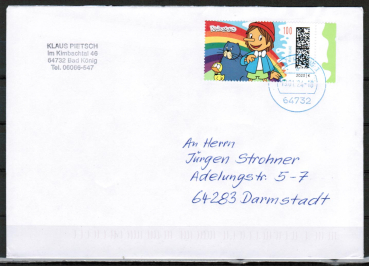 KLAUS PIETSCH
Im Kimbachtal 46
64732 Bad König
Tel. 06066-647
100
64732
An Herrn
Jürgen Strohner
Adelungstr. 5-7
64283 Darmstadt